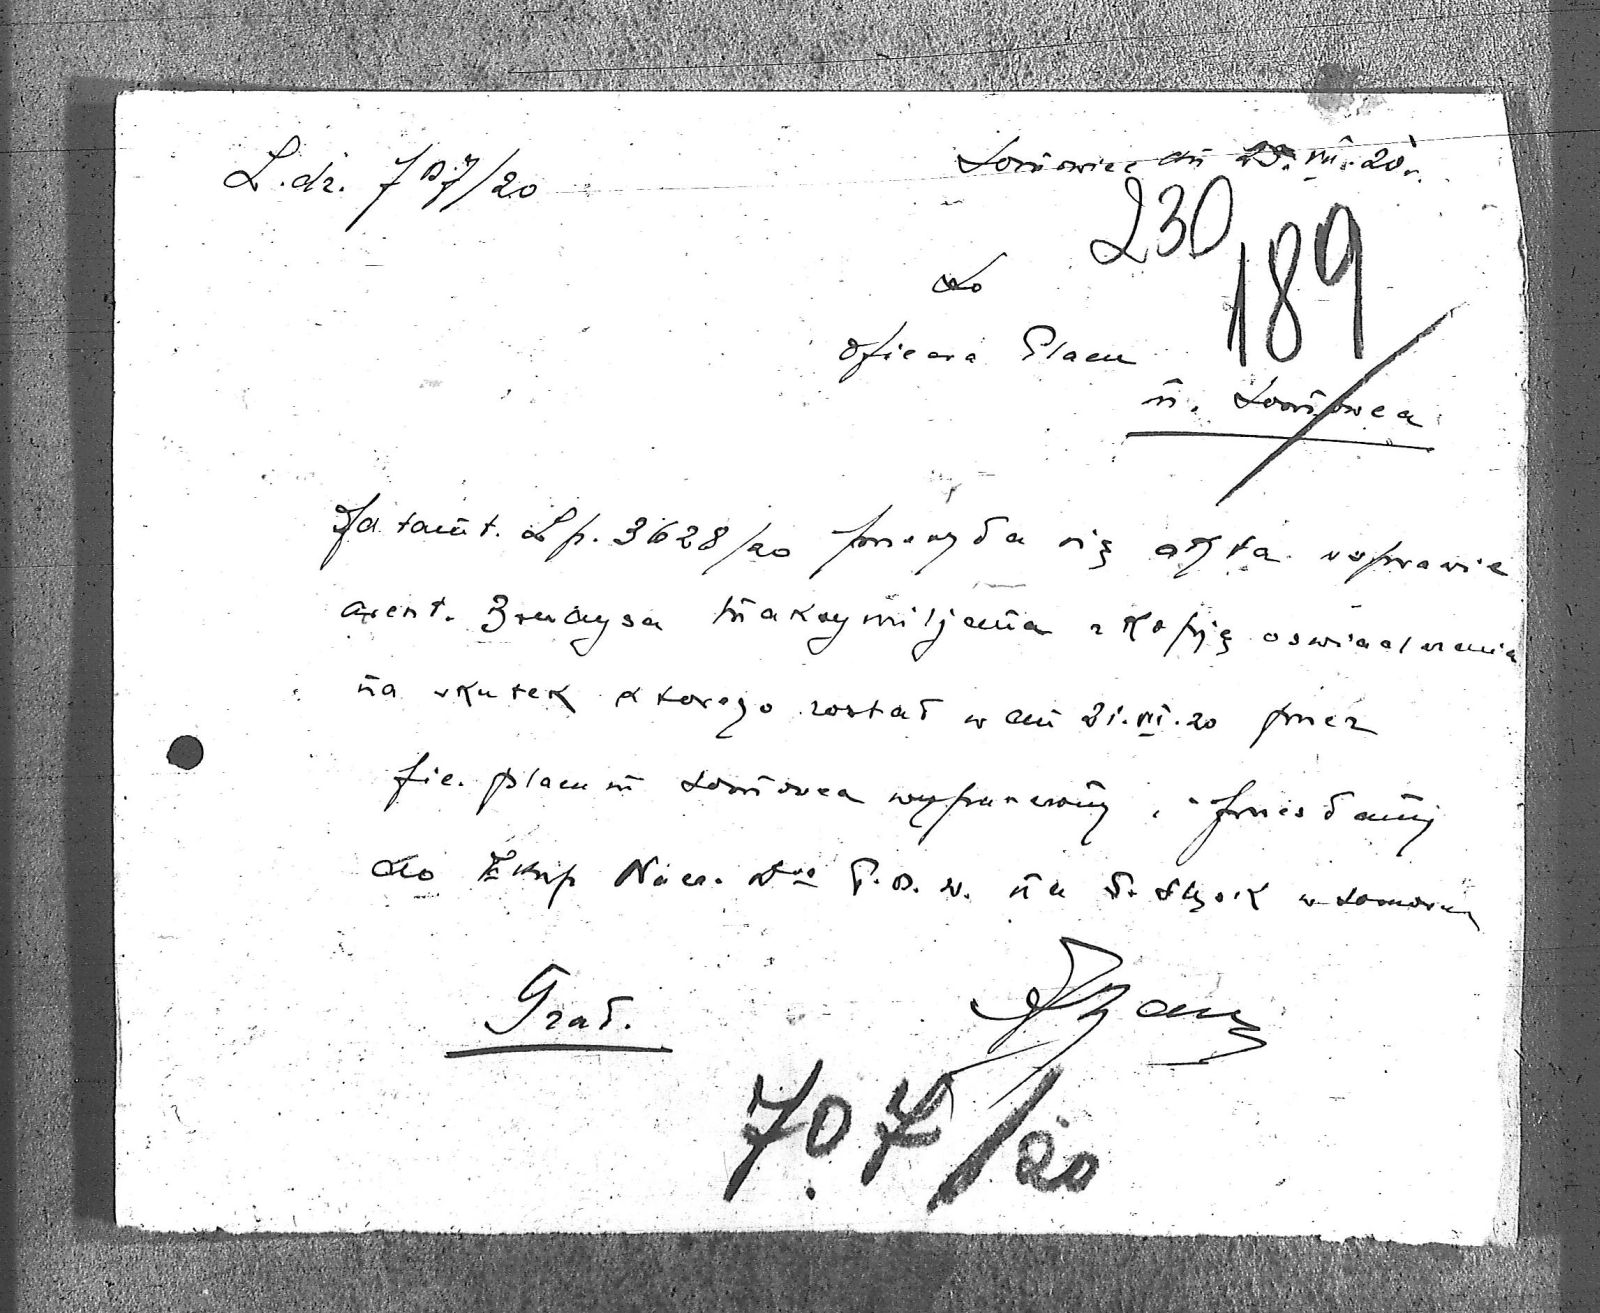 L.dz. 707/20
Sosnowiec dn 23.VII.20 r.
230
189
Do
Oficera Placu
m. Sosnowca
Za tamt. Lp. 3628/20 przesyła się akta w sprawie
areszt. Maksymiljana z kopją oświadczenia
na skutek którego został w dn 21.VII.20 przez
fic. placu m Sosnowca wypuszczony, i przesłany
do Eksp Nacz. Dtwa P.O.W. na G. Śląsk w Sosnowcu
Zał.
707/20